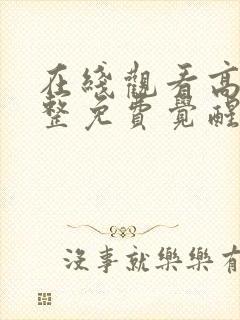 在綫觀看高
整免費覺醒
沒事就樂樂有